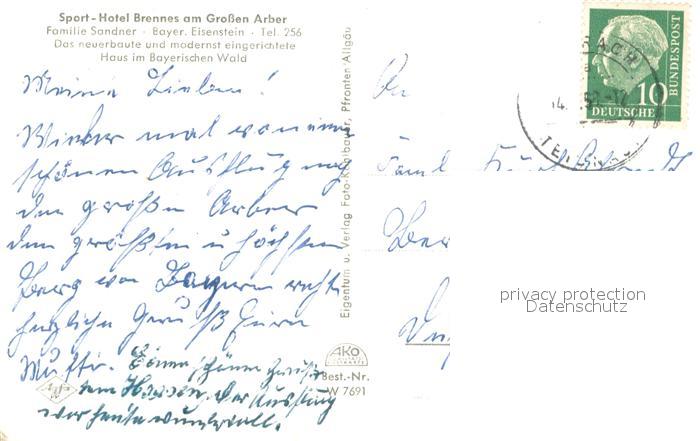 Sport-Hotel Brennes am Großen Arber
Familie Sandner · Bayer. Eisenstein · Tel. 256
Das neuerbaute und modernst eingerichtete
Haus im Bayerischen Wald
Meine Lieben!
Wieder mal von einem
schönen Ausflug auf
den großen Arber
den größten u höchsten
Berg von Bayern recht
herzliche Grüße Eure
Mutti.
der Ausflug
war heute wundervoll.
Eigentum u. Verlag Foto-Kohlbauer, Pfronten-Allgäu
AKO
Best.-Nr.
W 7691
Agfa
An
Famil
BUNDESPOST
10
DEUTSCHE
14.
privacy protection
Datenschutz